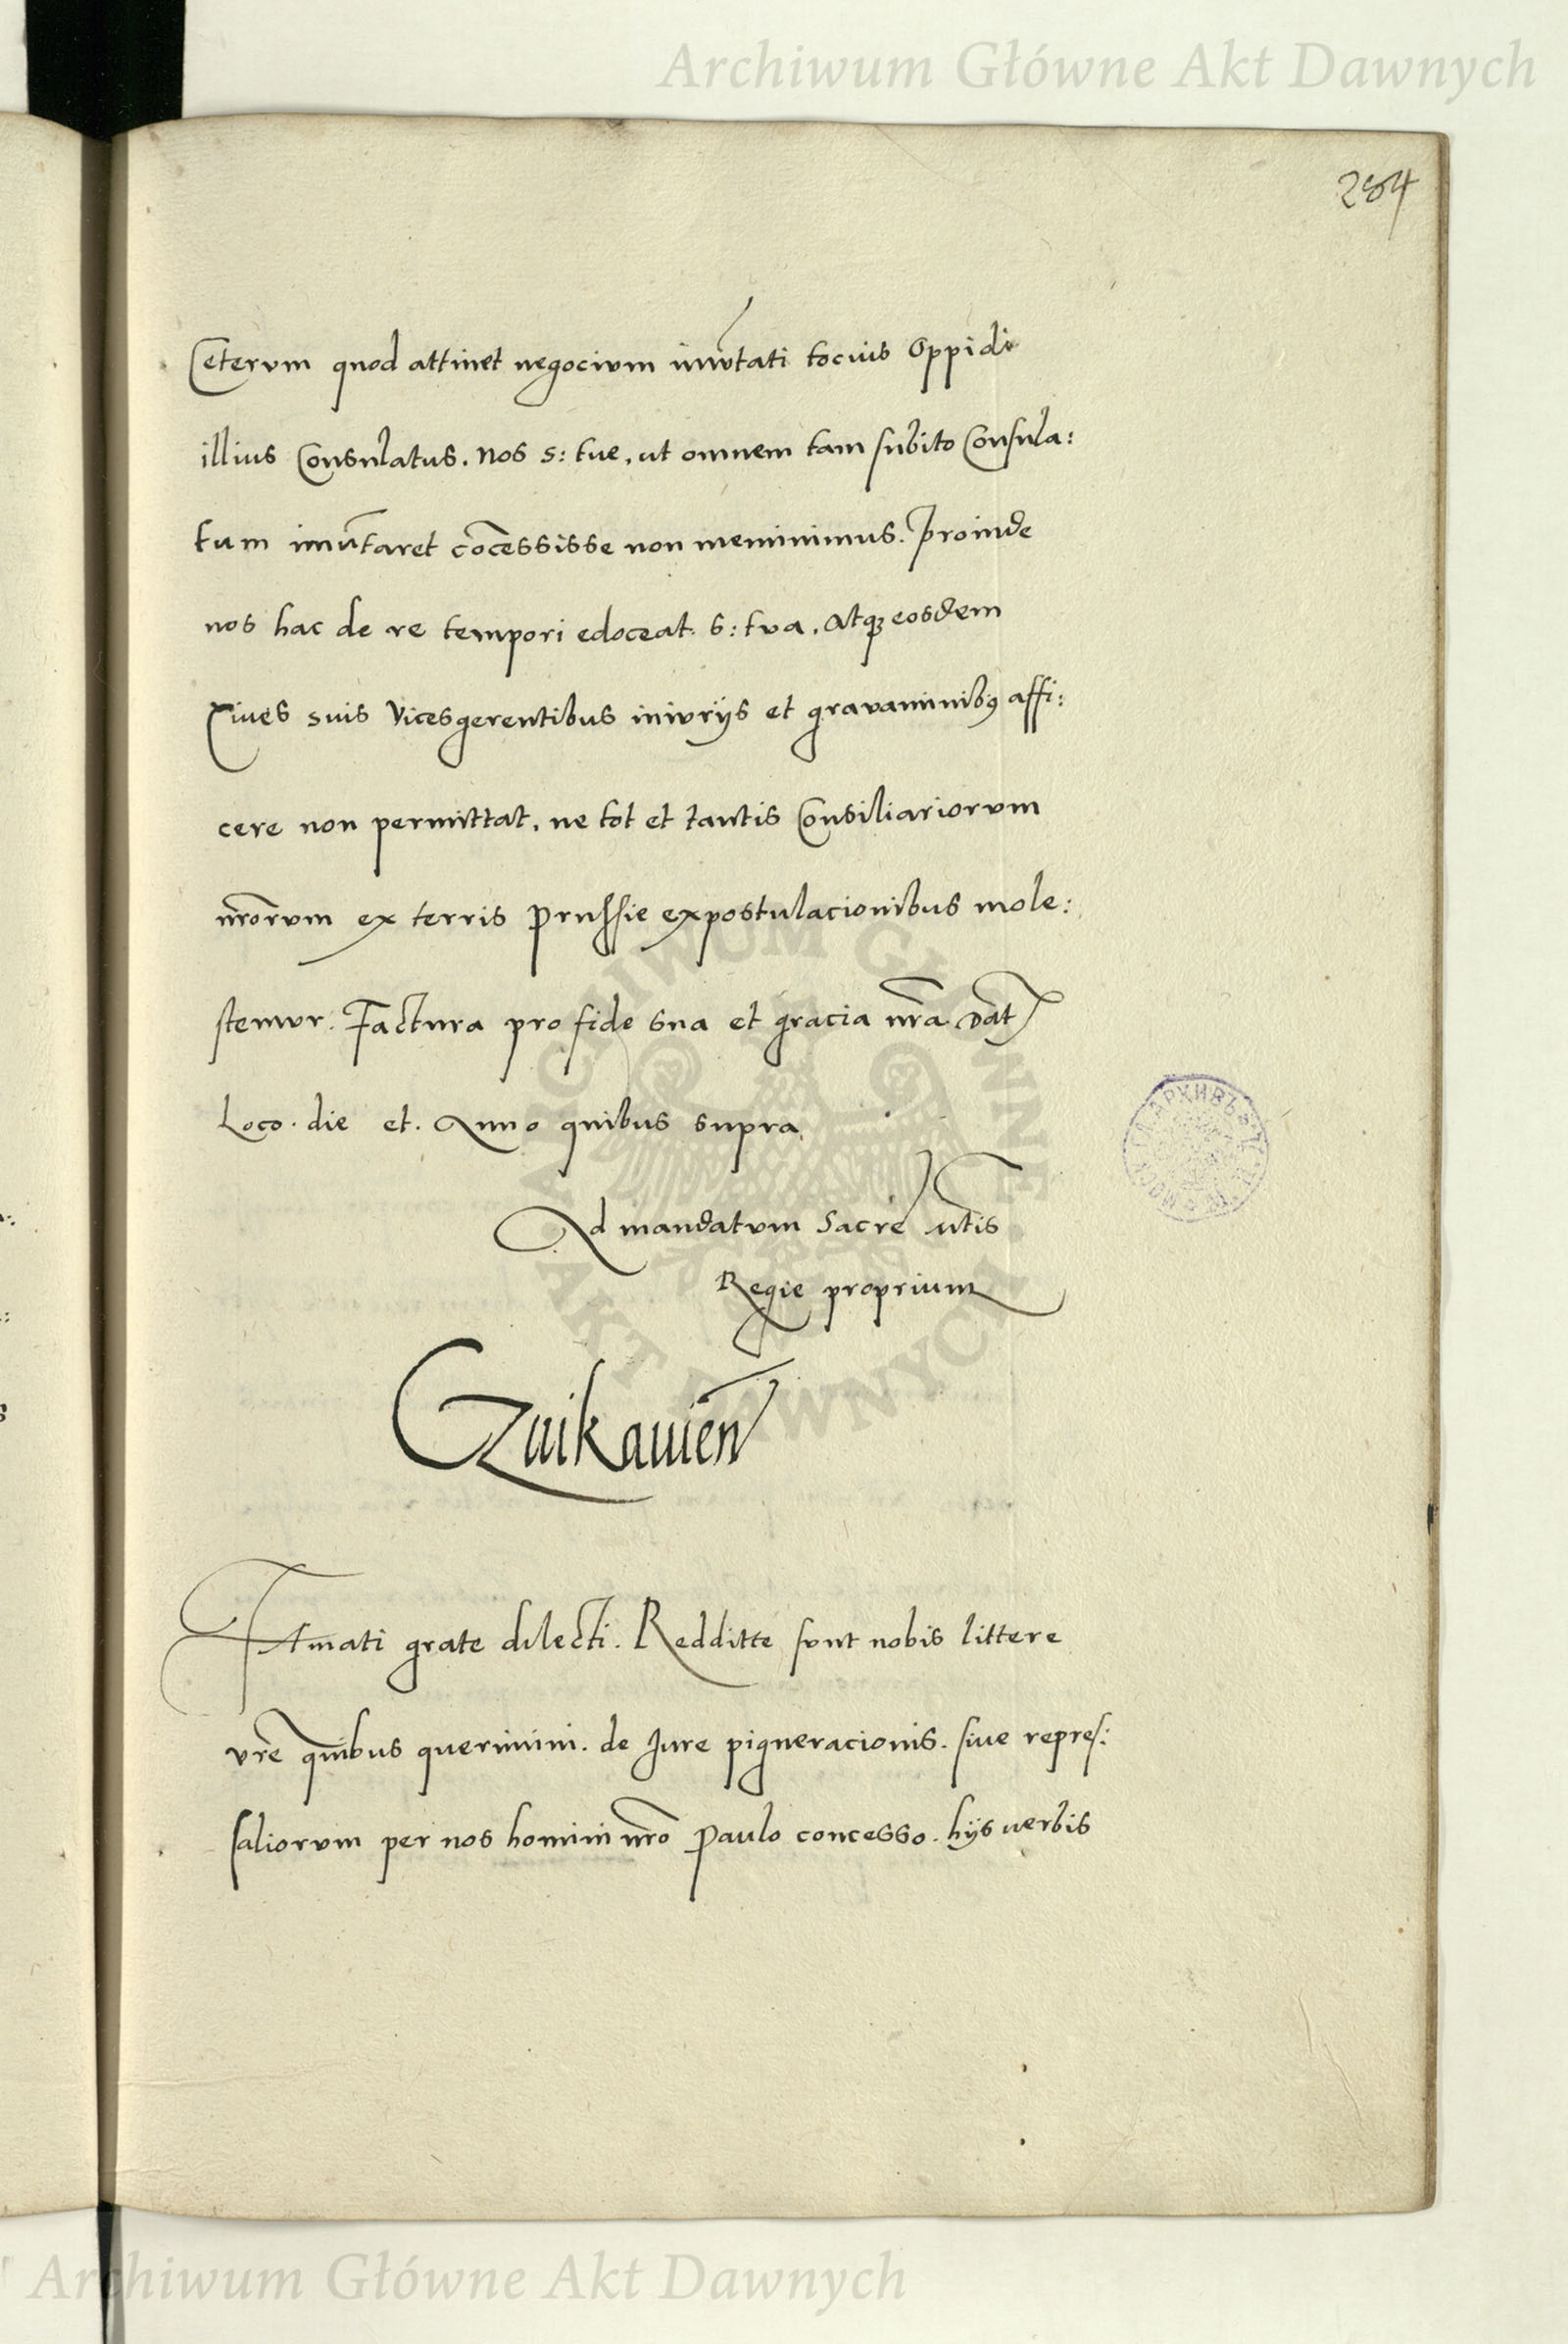 Archiwum Główne Akt Dawnych
284
Ceterum quod attinet negocium imutati tocius Oppidi
illius Consulatus. Nos s: tue, ut omnem tam subito Consula:
tum imutaret cōcessisse non meminimus. Proinde
nos hac de re tempori edoceat. S: tua, atqꝫ eosdem
Ciues suis Vicesgerentibus iniurijs et gravaminibꝰ affi:
cere non permittat, ne tot et tantis Consiliariorum
nr̄orum ex terris Prussie expostulacionibus mole:
stemur. Factura pro fide sua et gracia nr̄a. Dat
Loco. die et. Anno quibus supra
Ad mandatum Sacre Mtis
Regie proprium
Czuikauien̄
Famati grate dilecti. Redditte sunt nobis littere
vr̄e quibus querimini. de Jure pigneracionis. siue repres:
saliorum per nos homini nr̄o Paulo concesso. hijs uerbis
ARCHIWUM GŁÓWNE
AKT DAWNYCH
АРХИВЪ
Archiwum Główne Akt Dawnych